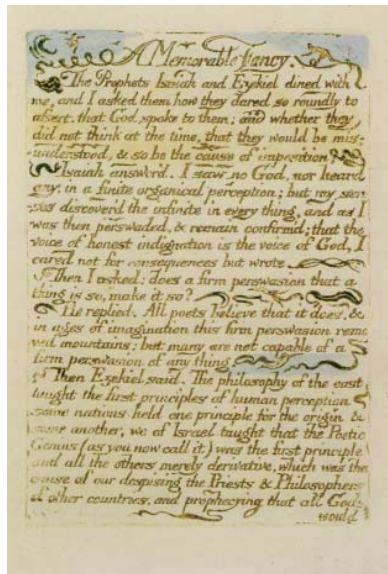 A Memorable Fancy.
The Prophets Isaiah and Ezekiel dined with
me, and I asked them how they dared so roundly to
assert. that God spoke to them; and whether they
did not think at the time, that they would be mis-
understood, & so be the cause of imposition
Isaiah answer'd. I saw no God, nor heard
any, in a finite organical perception; but my sen-
ses discover'd the infinite in every thing, and as I
was then perswaded, & remain confirm'd; that the
voice of honest indignation is the voice of God, I
cared not for consequences but wrote.
Then I asked: does a firm perswasion that a
thing is so, make it so?
He replied. All poets believe that it does, &
in ages of imagination this firm perswasion remo
ved mountains; but many are not capable of a
firm perswasion of any thing
Then Ezekiel said. The philosophy of the east
taught the first principles of human perception
some nations held one principle for the origin &
some another, we of Israel taught that the Poetic
Genius (as you now call it) was the first principle
and all the others merely derivative, which was the
cause of our despising the Priests & Philosophers
of other countries, and prophecying that all Gods
would